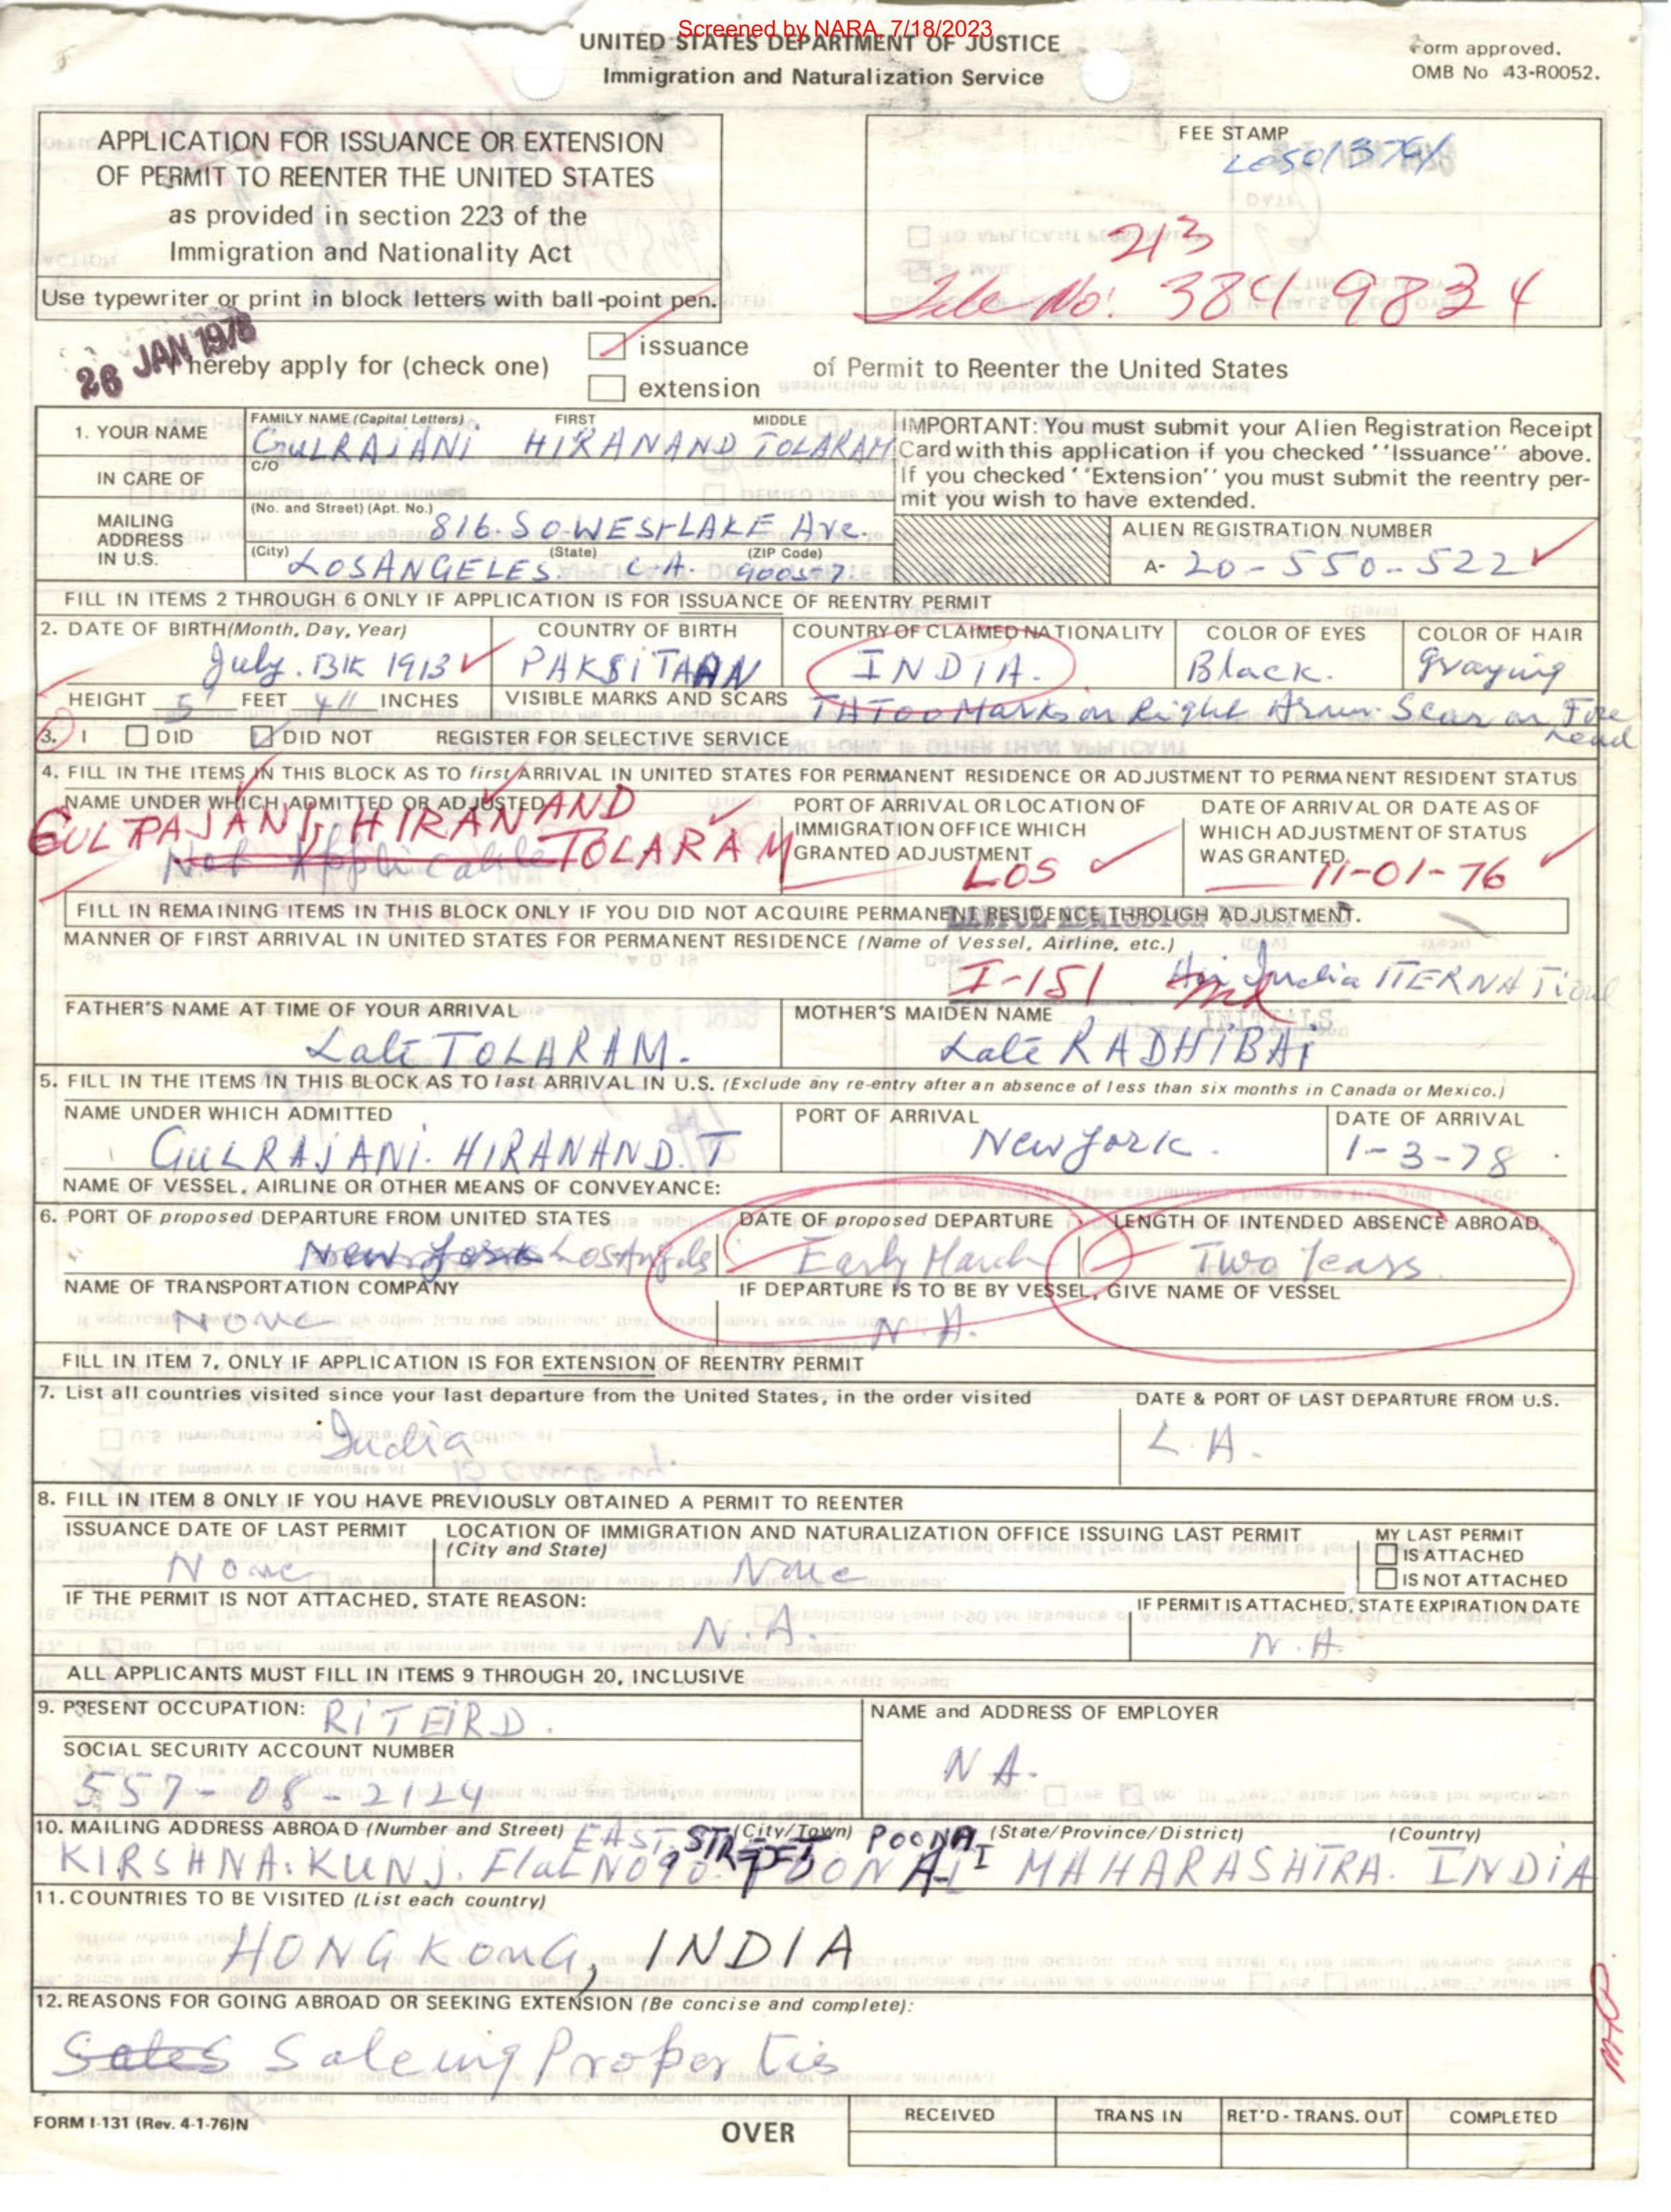 Screened by NARA, 7/18/2023
UNITED STATES DEPARTMENT OF JUSTICE
Immigration and Naturalization Service
Form approved.
OMB No 43-R0052.
APPLICATION FOR ISSUANCE OR EXTENSION
OF PERMIT TO REENTER THE UNITED STATES
as provided in section 223 of the
Immigration and Nationality Act
Use typewriter or print in block letters with ball-point pen.
FEE STAMP
213
File No: 3849834
26 JAN 1978
hereby apply for (check one)
issuance
extension
of Permit to Reenter the United States
1. YOUR NAME
FAMILY NAME (Capital Letters) FIRST MIDDLE
GULRAJANI HIRANAND TOLARAM
IN CARE OF
C/O
MAILING ADDRESS IN U.S.
(No. and Street) (Apt. No.)
816. SO WESTLAKE Ave.
(City) (State) (ZIP Code)
LOSANGELES. C.A. 90057
IMPORTANT: You must submit your Alien Registration Receipt
Card with this application if you checked ''Issuance'' above.
If you checked ''Extension'' you must submit the reentry per-
mit you wish to have extended.
ALIEN REGISTRATION NUMBER
A- 20-550-522
FILL IN ITEMS 2 THROUGH 6 ONLY IF APPLICATION IS FOR ISSUANCE OF REENTRY PERMIT
2. DATE OF BIRTH (Month, Day, Year) COUNTRY OF BIRTH COUNTRY OF CLAIMED NATIONALITY COLOR OF EYES COLOR OF HAIR
July. 1913 PAKSITAAN INDIA. Black. Graying
HEIGHT 5' FEET 4" INCHES VISIBLE MARKS AND SCARS TATOO Marks on Right Arum. Scar on Fore
head
3. I DID DID NOT REGISTER FOR SELECTIVE SERVICE
4. FILL IN THE ITEMS IN THIS BLOCK AS TO first ARRIVAL IN UNITED STATES FOR PERMANENT RESIDENCE OR ADJUSTMENT TO PERMANENT RESIDENT STATUS
NAME UNDER WHICH ADMITTED OR ADJUSTED
GULRAJANI, HIRANAND
TOLARAM
Not Applicable
PORT OF ARRIVAL OR LOCATION OF
IMMIGRATION OFFICE WHICH
GRANTED ADJUSTMENT
LOS
DATE OF ARRIVAL OR DATE AS OF
WHICH ADJUSTMENT OF STATUS
WAS GRANTED
11-01-76
FILL IN REMAINING ITEMS IN THIS BLOCK ONLY IF YOU DID NOT ACQUIRE PERMANENT RESIDENCE THROUGH ADJUSTMENT.
LAWFUL ADMISSION VERIFIED
MANNER OF FIRST ARRIVAL IN UNITED STATES FOR PERMANENT RESIDENCE (Name of Vessel, Airline, etc.)
I-151 Air India ITERNATional
INITIALS
FATHER'S NAME AT TIME OF YOUR ARRIVAL
Late TOLARAM.
MOTHER'S MAIDEN NAME
Late RADHIBAI
5. FILL IN THE ITEMS IN THIS BLOCK AS TO last ARRIVAL IN U.S. (Exclude any re-entry after an absence of less than six months in Canada or Mexico.)
NAME UNDER WHICH ADMITTED PORT OF ARRIVAL DATE OF ARRIVAL
GULRAJANI. HIRANAND. T New york. 1-3-78
NAME OF VESSEL, AIRLINE OR OTHER MEANS OF CONVEYANCE:
6. PORT OF proposed DEPARTURE FROM UNITED STATES DATE OF proposed DEPARTURE LENGTH OF INTENDED ABSENCE ABROAD
New York LosAngels Early March Two Years
NAME OF TRANSPORTATION COMPANY IF DEPARTURE IS TO BE BY VESSEL, GIVE NAME OF VESSEL
None N.A.
FILL IN ITEM 7, ONLY IF APPLICATION IS FOR EXTENSION OF REENTRY PERMIT
7. List all countries visited since your last departure from the United States, in the order visited DATE & PORT OF LAST DEPARTURE FROM U.S.
India L.A.
8. FILL IN ITEM 8 ONLY IF YOU HAVE PREVIOUSLY OBTAINED A PERMIT TO REENTER
ISSUANCE DATE OF LAST PERMIT LOCATION OF IMMIGRATION AND NATURALIZATION OFFICE ISSUING LAST PERMIT
(City and State)
None None
MY LAST PERMIT
IS ATTACHED
IS NOT ATTACHED
IF THE PERMIT IS NOT ATTACHED, STATE REASON: IF PERMIT IS ATTACHED, STATE EXPIRATION DATE
N.A. N.A.
ALL APPLICANTS MUST FILL IN ITEMS 9 THROUGH 20, INCLUSIVE
9. PRESENT OCCUPATION: RITEIRD.
NAME and ADDRESS OF EMPLOYER
NA.
SOCIAL SECURITY ACCOUNT NUMBER
557-08-2124
10. MAILING ADDRESS ABROAD (Number and Street) (City/Town) (State/Province/District) (Country)
EAST STREET POONA I
KIRSHNA. KUNJ. Flat No 90. POONA I MAHARASHTRA. INDIA
11. COUNTRIES TO BE VISITED (List each country)
HONGKONG, INDIA
12. REASONS FOR GOING ABROAD OR SEEKING EXTENSION (Be concise and complete):
Sales Saleing Properties
FORM I-131 (Rev. 4-1-76)N
OVER
RECEIVED TRANS IN RET'D - TRANS. OUT COMPLETED